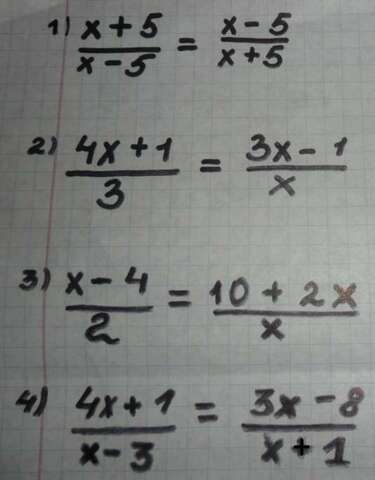 1) x + 5 / x - 5 = x - 5 / x + 5
2) 4x + 1 / 3 = 3x - 1 / x
3) x - 4 / 2 = 10 + 2x / x
4) 4x + 1 / x - 3 = 3x - 8 / x + 1